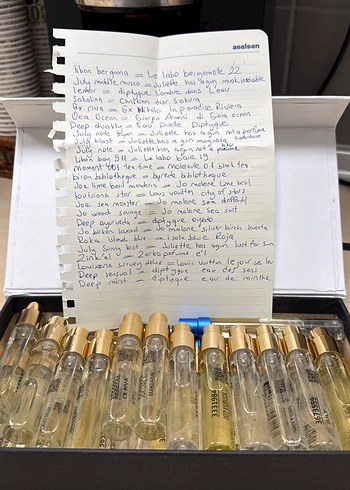 aselsan
Libon bergama = Le labo bergamote 22
July middle musc = Juliette has a gun musk invisible
leodor = diptyque L'ombre dans L'eau
Sakolina = Christian dior sakura
Ex riva = Ex Nihilo In paradise Riviera
Vea Ocean = Giorgio Armani di Gioia ocean
Deep duality = Eau Duelle Diptyque
July note super = Juliette has a gun not a perfume superdose
July blast = Juliette has a gun magnolia
July note = Juliette has a gun not a perfume
Libon bay 911 = Le labo baie 19
Moment 401 tea time = molecule 01 black tea
biron bibliotheque = byredo bibliotheque
Joe lime basil mandarin = Jo malone lime basil
Louisiana star = Louis vuitton city of stars
Joe sea monster = Jo malone sea daffodil
Jo wood savage = Jo malone Sea salt
Deep ayurveda = diptyque oyedo
Jo birken laxad = Jo malone silver birch lavanta
Roka island blue = isola blue Roja
July sunny lust = Juliette has a gun lust for sun
Zink'el = Zarko perfume e'l
Louisiana survey drive = Louis Vuitton le jour se leve
Deep sensual = diptyque eau des sens
Deep mint = diptyque eau de minthe
3331984